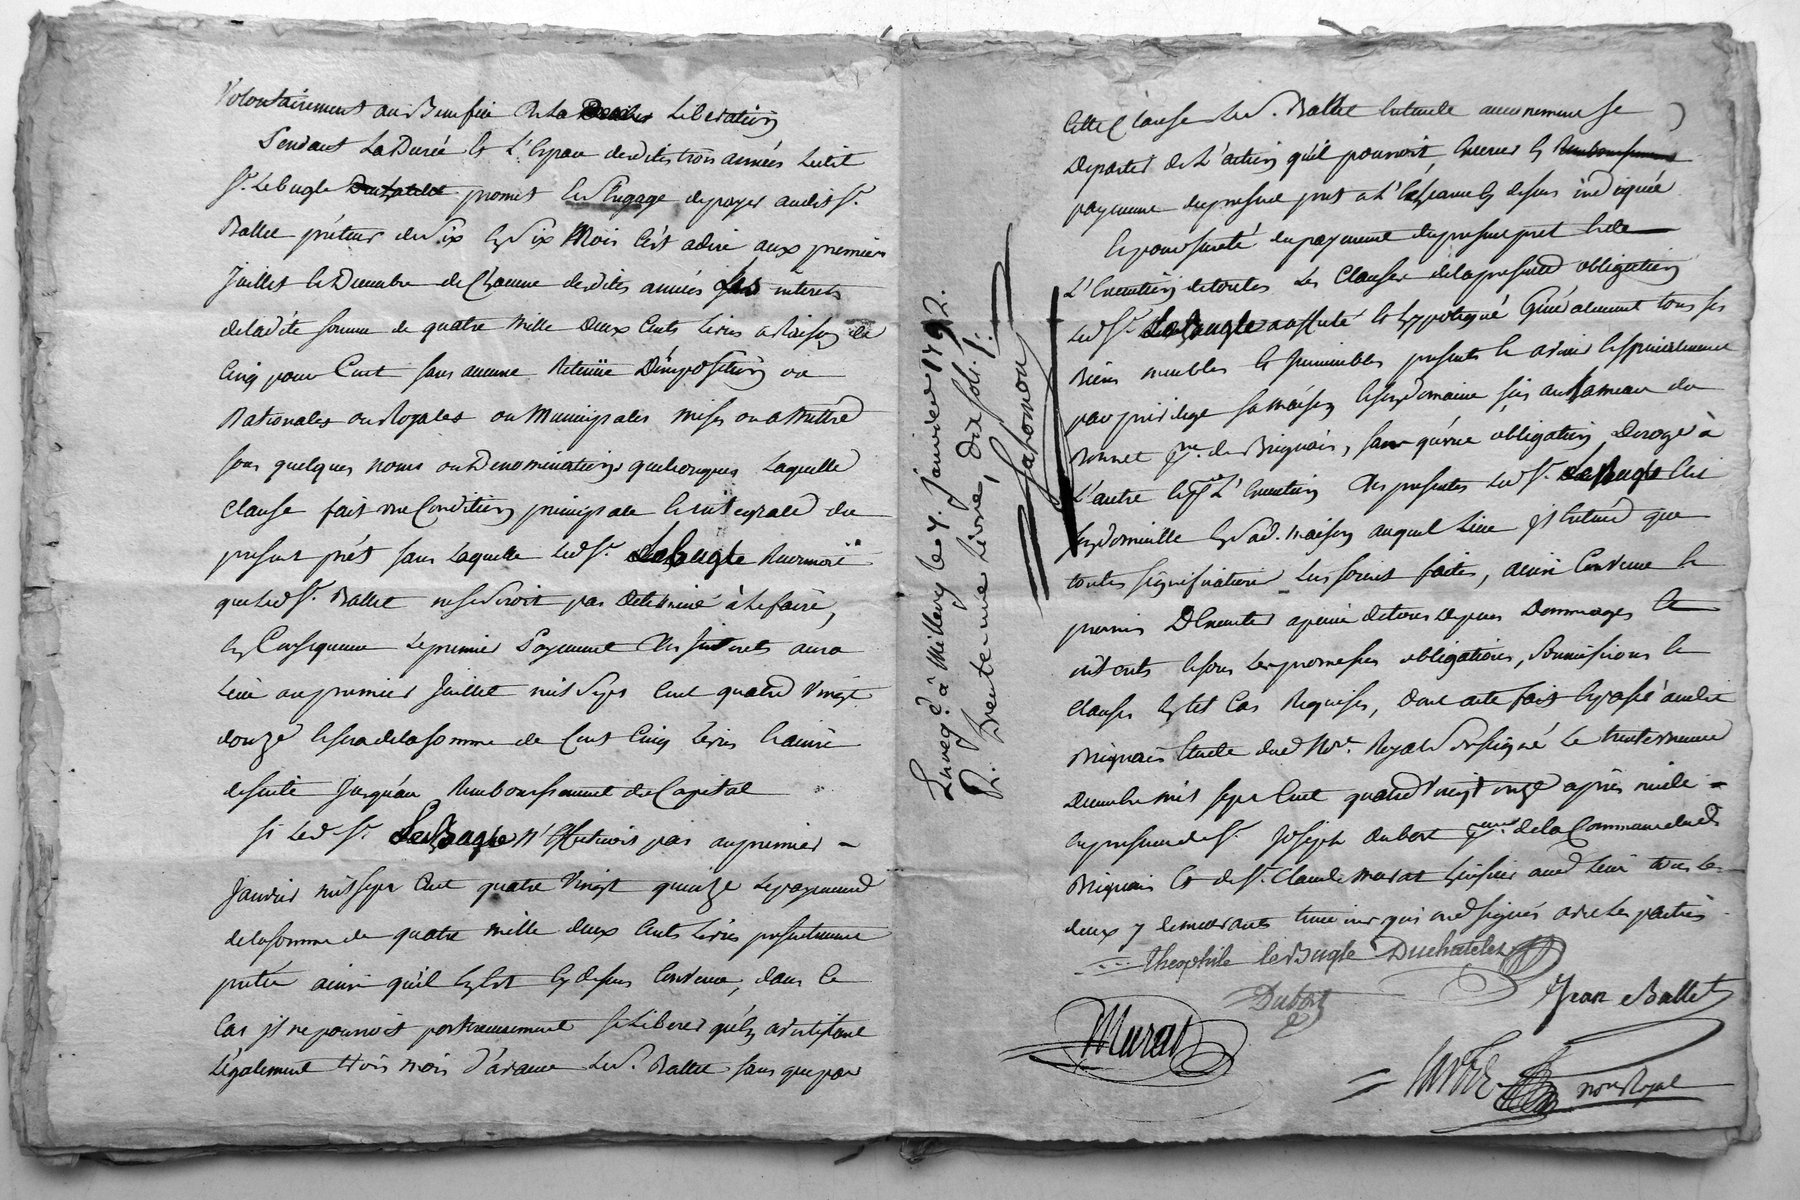 Volontairement au Benefice de la Libération
Pendant La Durée et L'Espace desdites trois années Ledit
Sr. LeBugle promet et s'Engage de payer audit Sr.
Ballet prêteur de Six en Six Mois C'est adire aux premiers
Juillet et Decembre de Chacune desdites années Les interets
de ladite somme de quatre mille Deux Cents Livres a Raison de
Cinq pour Cent sans aucune Retenüe D'imposition ou
Nationales ou Royales ou Municipales mises ou a Mettre
sous quelques noms ou Denominations quelconques Laquelle
Clause fait une Condition principale et integrale du
present prét sans Laquelle Led Sr. LeBugle
que Led Sr. Ballet ne se seroit pas determiné à Le faire,
En Consequence Le premier Payement des Interets aura
Lieu au premier Juillet mil Sept Cent quatre Vingt
douze et sera de la somme de Cent Cinq Livres et ainsi
de suite Jusqu'au Remboursement du Capital
Si Led Sr. LeBugle N'Effectuoit pas au premier
Janvier mil sept Cent quatre Vingt quinze Le payement
de la somme de quatre mille deux Cents Livres presentement
pretée ainsi qu'il Est Cy dessus Convenu, dans Ce
Cas Jl ne pourroit posterieurement se Liberer qu'En avertissant
Légalement trois mois d'avance Led Sr. Ballet sans que par
Cette Clause Led Sr. Ballet Entende aucunement se
Departir de L'action qu'il pourroit Exercer En
payement du present pret a L'Echeance Cy dessus indiquée
Et pour sureté du payement du present pret Et de
L'Execution de toutes Les Clauses de la presente obligation
Led Sr. LeBugle a affecté Et hypotequé Généralement tous ses
Biens meubles Et Immeubles presents Et avenir Et specialement
par privilege sa maison Et son domaine sis au hameau du
Bonnet psse. de Brignais, sans qu'une obligation Deroge à
L'autre Et pr. L'Execution des presentes Led Sr. LeBugle Elit
son domicille En sad. maison auquel Lieu Jl Entend que
toutes significations Lui soient faites, ainsi Convenu Et
promis D'Executer a peine de tous depens Dommages Et
interets Et sous Les promesses obligations, soumissions Et
Clauses En tel Cas Requises, dont acte fait Et passé audit
Brignais Etude dud Nore. Royal Soussigné Le trente un
Decembre mil sept Cent quatre Vingt onze après midi
En presence de Sr. Joseph Dubost de la Commune dud
Brignais Et de Sr. Claude Murat huissier aud Lieu tous Les
deux y demeurants temoins qui ont signés avec Les parties
Theophile leBugle Duchatelet
Dubost
Jean Ballet
Murat
not Royal
Enreg.é à Millery le 7. janvier 1792.
R. trente une Livre, dix sols./.